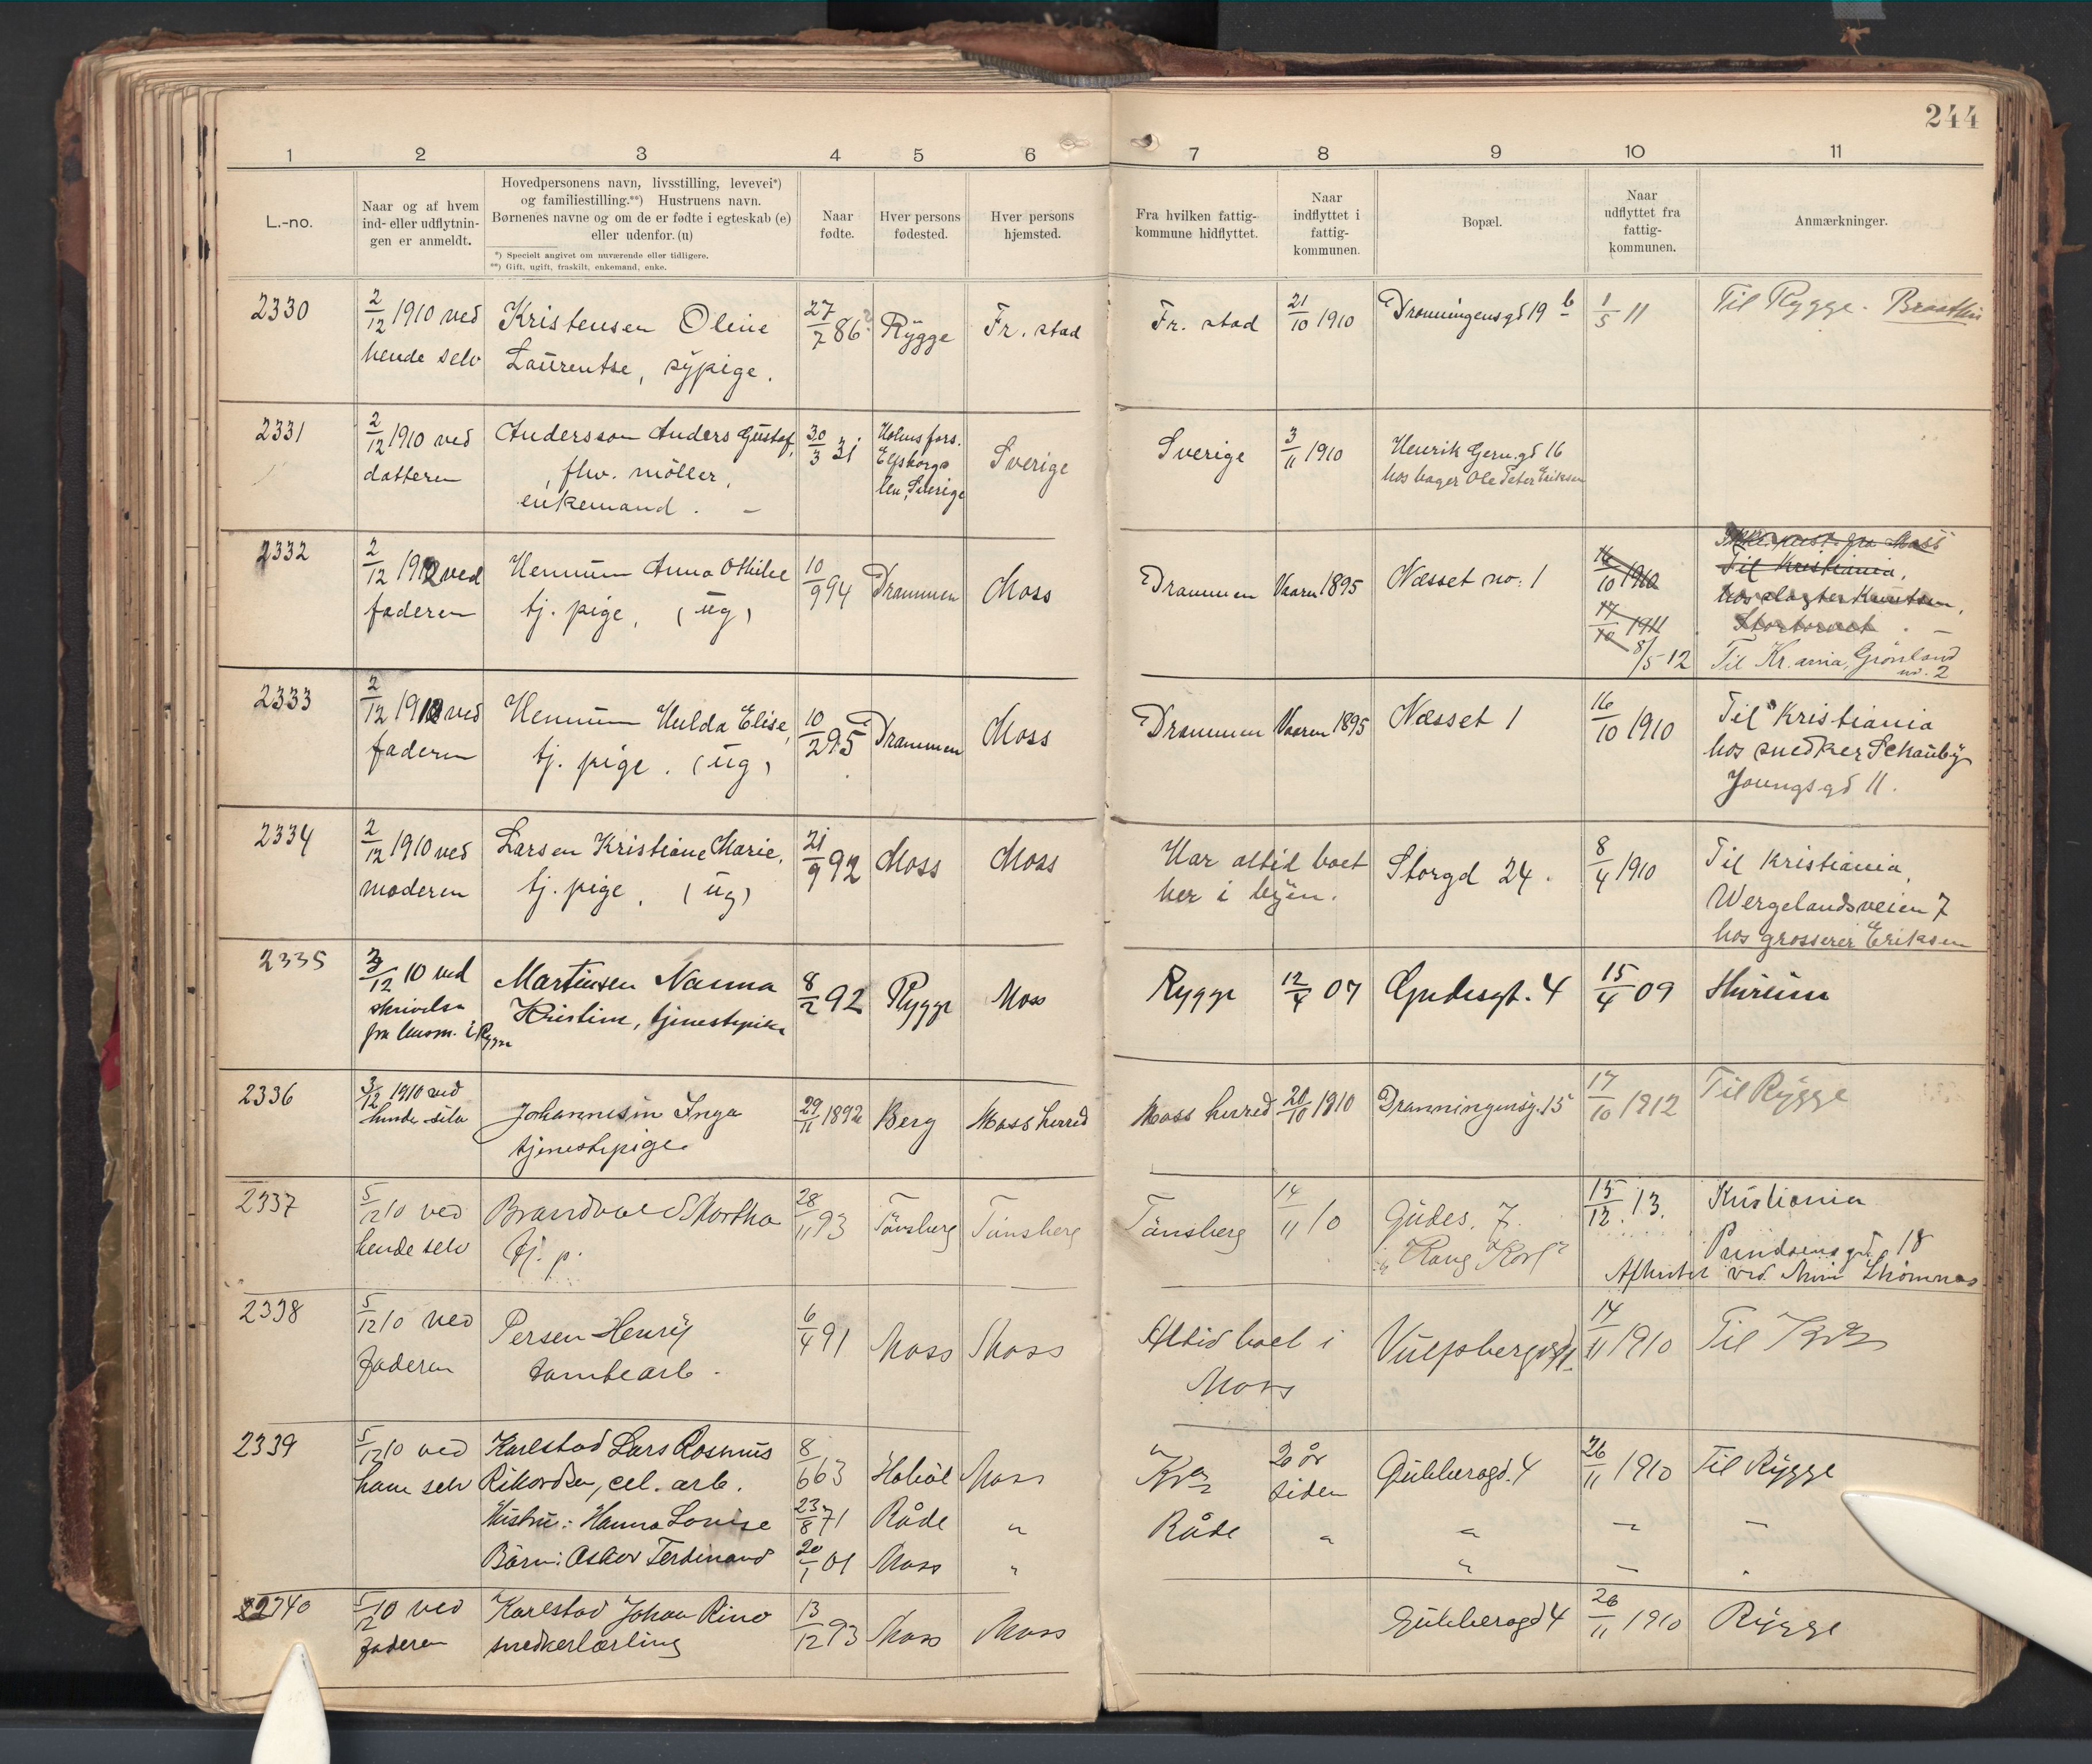 244
1 2 3 4 5 6 7 8 9 10 11
L.-no.
Naar og af hvem
ind- eller udflytnin-
gen er anmeldt.
Hovedpersonens navn, livsstilling, levevei*)
og familiestilling.**) Hustruens navn.
Børnenes navne og om de er fødte i egteskab (e)
eller udenfor. (u)
*) Specielt angivet om nuværende eller tidligere.
**) Gift, ugift, fraskilt, enkemand, enke.
Naar
fødte.
Hver persons
fødested.
Hver persons
hjemsted.
Fra hvilken fattig-
kommune hidflyttet.
Naar
indflyttet i
fattig-
kommunen.
Bopæl.
Naar
udflyttet fra
fattig-
kommunen.
Anmærkninger.
2330 2/12 1910 ved Kristensen Oline 27/7 86 Rygge Fr. stad Fr. stad 21/10 1910 Dronningensgd 19 b 1/5 11 Til Rygge.
hende selv Laurentse, sypige.
2331 2/12 1910 ved Andersson Anders Gustaf, 30/3 31 Sverige Sverige 3/11 1910 Henrik Gern.gd 16
datteren flv. møller, Elfsborgs hos bager Ole Peter Eriksen
enkemand. - len, Sverige
2332 2/12 1910 ved Hennum Anna Othilie 10/9 94 Drammen Moss Drammen Vaaren 1895 Næsset no. 1 16/10 1910 Til Kristiania,
faderen tj. pige, (ug) hos slagter Knutsen,
17/10 1911 Stortorvet. -
8/5 12 Til Kr.ania, Grønland
no. 2
2333 2/12 1910 ved Hennum Hulda Elise, 10/2 95 Drammen Moss Drammen Vaaren 1895 Næsset 1 16/10 1910 Til Kristiania
faderen tj. pige. (ug) hos snedker Schauby
Youngsgd 11.
2334 2/12 1910 ved Larsen Kristiane Marie, 21/9 92 Moss Moss Har altid boet Storgd 24. 8/4 1910 Til Kristiania,
moderen tj. pige, (ug) her i byen. Wergelandsveien 7
hos grosserer Eriksen
2335 3/12 10 ved Martinsen Nanna 8/2 92 Rygge Moss Rygge 12/4 07 Gudesgt. 4 15/4 09 Hurum
skrivelse Kristine, tjenestepike
fra i Rygge
2336 3/12 1910 ved Johannesen Inga 29/11 1892 Berg Moss herred Moss herred 20/10 1910 Dronningensg. 15 17/10 1912 Til Rygge
hende selv tjenestepige
2337 5/12 10 ved Brandvold Martha 28/11 93 Tønsberg Tønsberg Tønsberg 14/11 10 Gudes. 7. 15/12 13. Kristiania
hende selv tj. p. 18
2338 5/12 10 ved Persen Henry 6/4 91 Moss Moss Altid boet i 14/11 1910 Til Kra
faderen tomtearb. Moss
2339 5/12 10 ved Karlstad Lars Rasmus 8/6 63 Hobøl Moss Kra 20 år Gubberogd. 4 26/11 1910 Til Rygge
ham selv Rikardsen, cel. arb. siden
Hustru: Hanna Lovise 23/8 71 Råde " Råde " " - -
Børn: Oskar Ferdinand 20/1 01 Moss " " -
2340 5/12 10 ved Karlstad Johan Rino 13/12 93 Moss Moss Gubberogd 4 26/11 1910 Rygge
faderen snedkerlærling